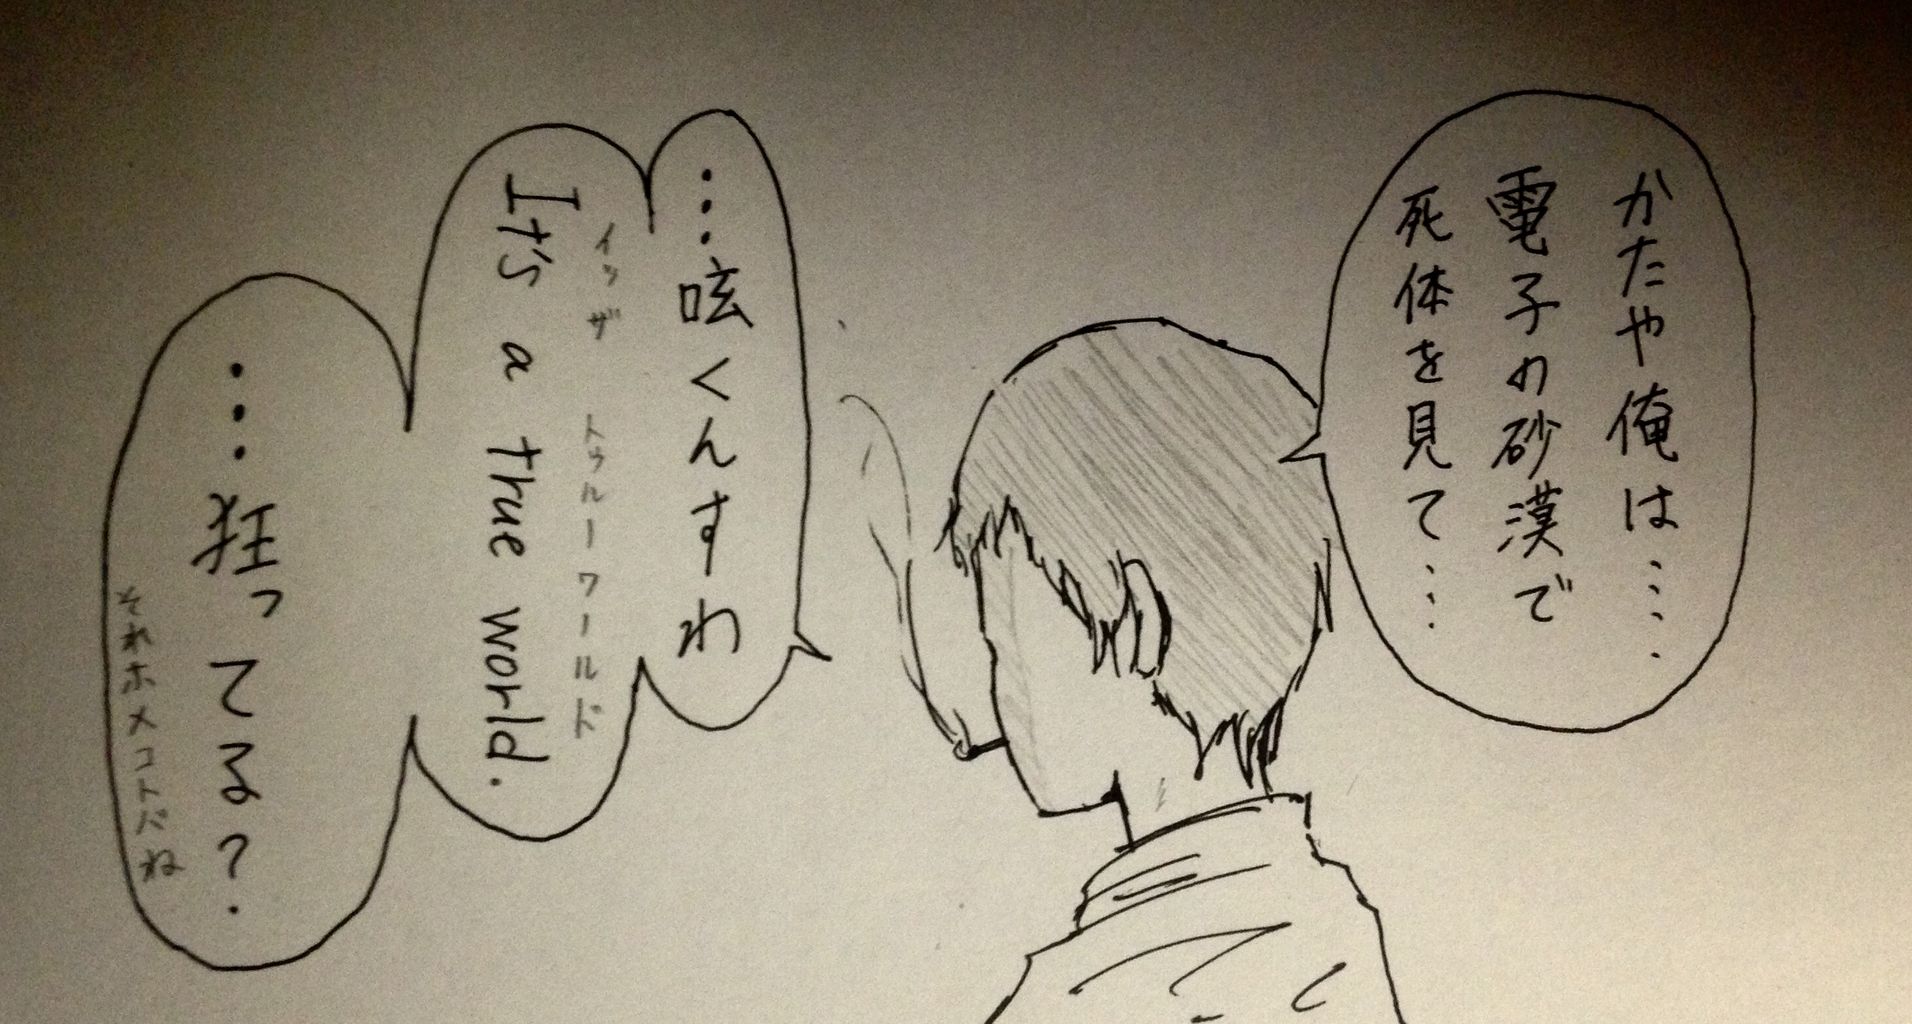 かたや俺は…‥
電子の砂漠で
死体を見て…‥
…呟くんすわ
イッザ トゥルーワールド
It's a true world.
…狂ってる?.
それホメコトバね